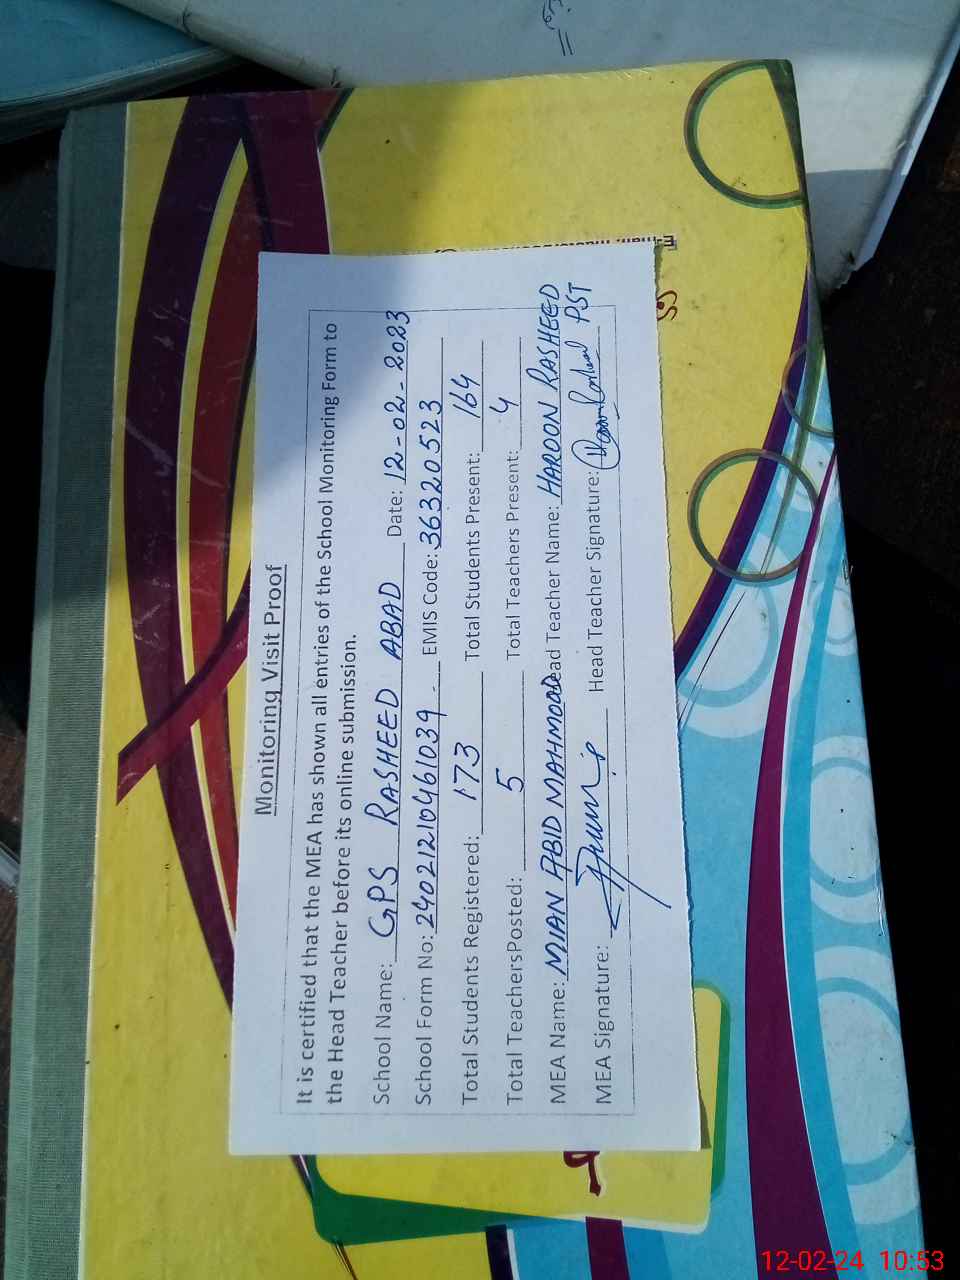 Monitoring Visit Proof
It is certified that the MEA has shown all entries of the School Monitoring Form to
the Head Teacher before its online submission.
School Name: GPS RASHEED ABAD Date: 12-02-2023
School Form No: 2402121046 1039 - EMIS Code: 36320523
Total Students Registered: 173 Total Students Present: 164
Total TeachersPosted: 5 Total Teachers Present: 4
MEA Name: MIAN ABID MAHMOOD Head Teacher Name: HAROON RASHEED
MEA Signature: Head Teacher Signature: Haroon Rasheed PST
12-02-24 10:53